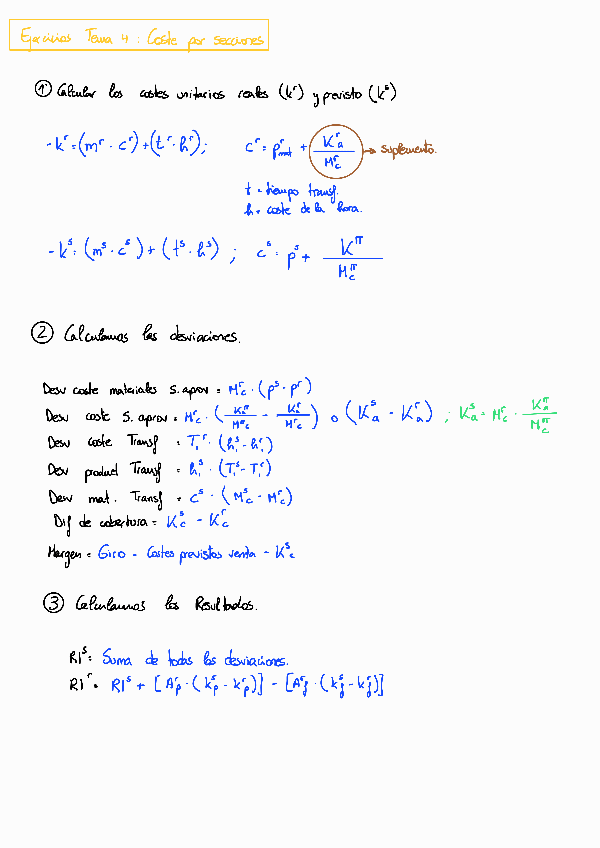 Ejercicios Tema 4 : Coste por secciones
① Calcular los costes unitarios reales (kʳ) y previsto (kˢ)
- kʳ = (mʳ · cʳ) + (tʳ · hʳ) ; cʳ = pʳmat + Kʳa / Mʳc → suplemento.
t = tiempo transf.
h = coste de la hora.
- kˢ = (mˢ · cˢ) + (tˢ · hˢ) ; cˢ = pˢ + K^π / M^πc
② Calculamos las desviaciones.
Desv coste materiales S. aprov = Mʳc · (pˢ - pʳ)
Desv coste S. aprov = Mʳc · (K^πa / M^πc - Kʳa / Mʳc) o (Kˢa - Kʳa) ; Kˢa = Mʳc · K^πa / M^πc
Desv coste Transf = Tʳi · (hˢi - hʳi)
Desv product Transf = hˢi · (Tˢi - Tʳi)
Desv mat. Transf = cˢ · (Mˢc - Mʳc)
Dif de cobertura = Kˢc - Kʳc
Margen = Giro - Costes previstos venta - Kˢc
③ Calculamos los Resultados.
RIˢ = Suma de todas las desviaciones.
RIʳ = RIˢ + [Aʳp · (kˢp - kʳp)] - [Aʳf · (kˢf - kʳf)]